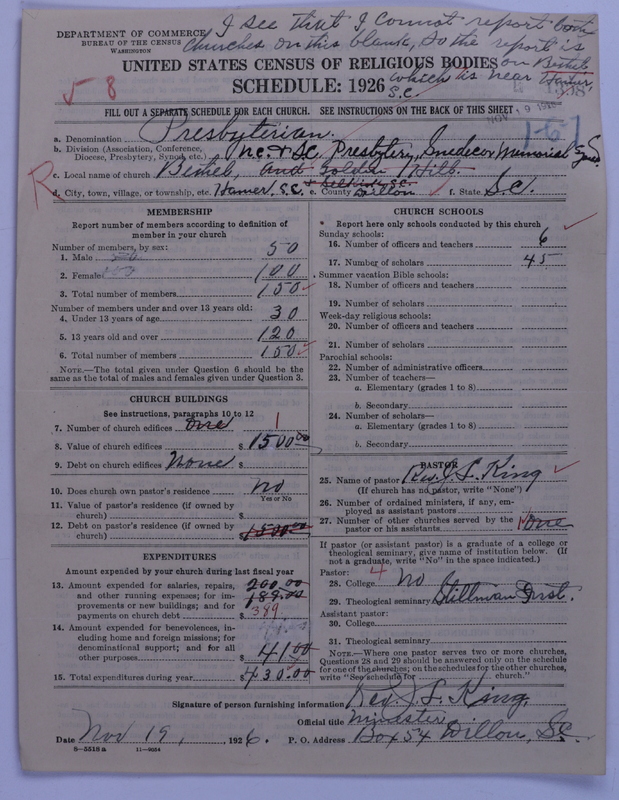 DEPARTMENT OF COMMERCE
BUREAU OF THE CENSUS
WASHINGTON
I see that I cannot report both
churches on this blank, so the report is
on Bethel
which is near Hamer,
S.C.
UNITED STATES CENSUS OF RELIGIOUS BODIES
SCHEDULE: 1926
58
NOV 19 1926
FILL OUT A SEPARATE SCHEDULE FOR EACH CHURCH. SEE INSTRUCTIONS ON THE BACK OF THIS SHEET
1-67
a. Denomination Presbyterian.
b. Division (Association, Conference, Diocese, Presbytery, Synod, etc.) N.C. & S.C. Presbytery, Snedecor Memorial Synod.
R
c. Local name of church Bethel, and Golden Hill.
d. City, town, village, or township, etc. Hamer, S.C. e. County Dillon f. State S.C.
MEMBERSHIP
Report number of members according to definition of
member in your church
Number of members, by sex:
1. Male 50
2. Female 100
3. Total number of members 150
Number of members under and over 13 years old:
4. Under 13 years of age 30
5. 13 years old and over 120
6. Total number of members 150
NOTE.—The total given under Question 6 should be
same as the total of males and females given under Question 3.
CHURCH BUILDINGS
See instructions, paragraphs 10 to 12
7. Number of church edifices one 1
8. Value of church edifices $ 1500.00
9. Debt on church edifices None $
10. Does church own pastor's residence No
Yes or No
11. Value of pastor's residence (if owned by
church) $
12. Debt on pastor's residence (if owned by
church) $ 1500.00
EXPENDITURES
Amount expended by your church during last fiscal year
13. Amount expended for salaries, repairs, 200.00
and other running expenses; for im- 189.00
provements or new buildings; and for
payments on church debt $ 389.
14. Amount expended for benevolences, in-
cluding home and foreign missions; for
denominational support; and for all
other purposes $ 41.00
15. Total expenditures during year $ 430.00
CHURCH SCHOOLS
Report here only schools conducted by this church
Sunday schools:
16. Number of officers and teachers 6
17. Number of scholars 45
Summer vacation Bible schools:
18. Number of officers and teachers
19. Number of scholars
Week-day religious schools:
20. Number of officers and teachers
21. Number of scholars
Parochial schools:
22. Number of administrative officers
23. Number of teachers—
a. Elementary (grades 1 to 8)
b. Secondary
24. Number of scholars—
a. Elementary (grades 1 to 8)
b. Secondary
PASTOR
25. Name of pastor Rev. J. L. King
(If church has no pastor, write "None")
26. Number of ordained ministers, if any, em-
ployed as assistant pastors
27. Number of other churches served by the
pastor or his assistants One
If pastor (or assistant pastor) is a graduate of a college or
theological seminary, give name of institution below. (If
not a graduate, write "No" in the space indicated.)
Pastor: 4
28. College No
29. Theological seminary Stillman Inst.
Assistant pastor:
30. College
31. Theological seminary
NOTE.—Where one pastor serves two or more churches,
Questions 28 and 29 should be answered only on the schedule
for one of the churches; on the schedules for the other churches,
write "See schedule for church."
Signature of person furnishing information Rev. J. L. King,
Official title Minister
Date Nov 19, 1926. P. O. Address Box 54 Dillon, S.C.
8-5518a 11-9034